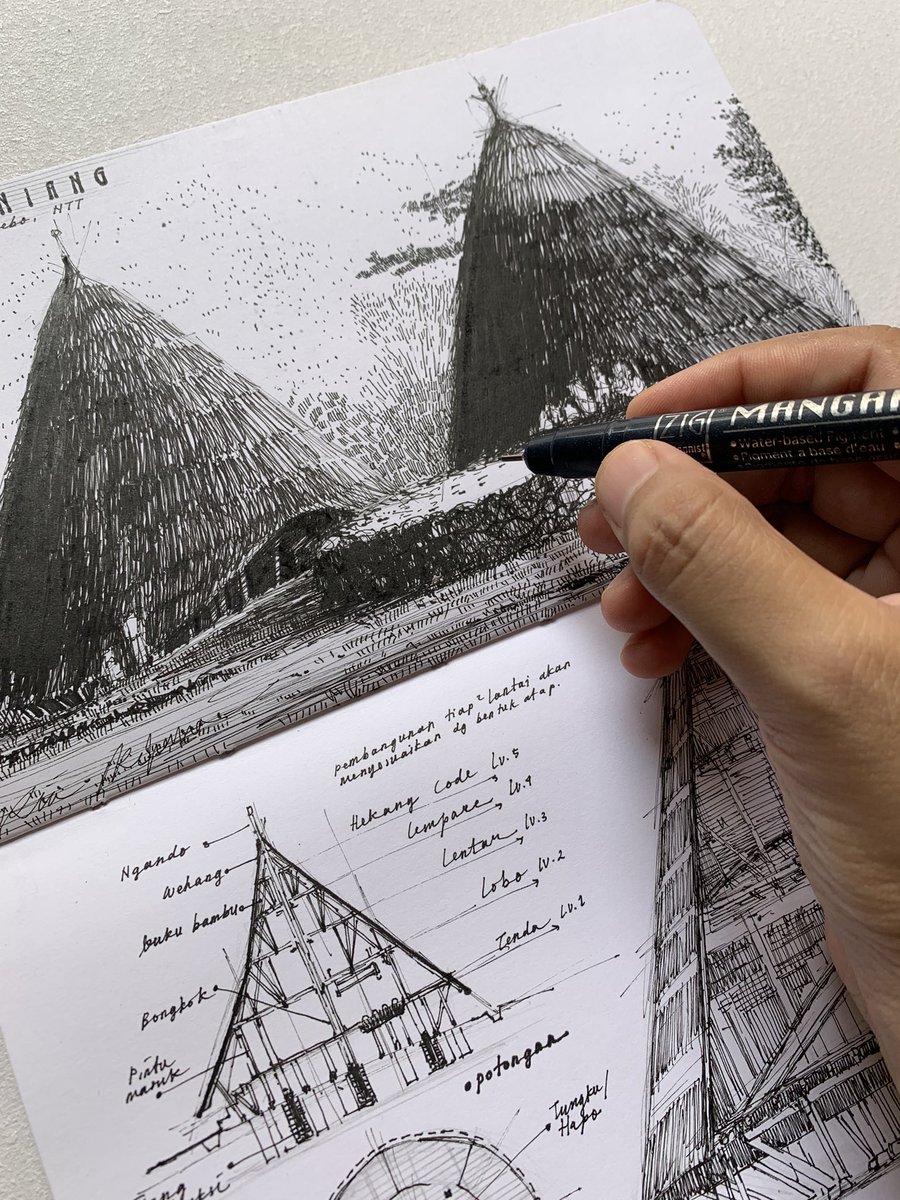 NIANG
NTT
ZIG MANGAK
Water-based Pigment
Pigment à base d'eau
pembangunan tiap² lantai akan
menyesuaikan dg bentuk atap.
Hekang Code Lv.5
Lempare Lv.4
Lentur Lv.3
Lobo Lv.2
Tenda Lv.1
Ngando
Wehang
buku bambu
Bongkok
Pintu
masuk
potongan
Tungku/
Hapo